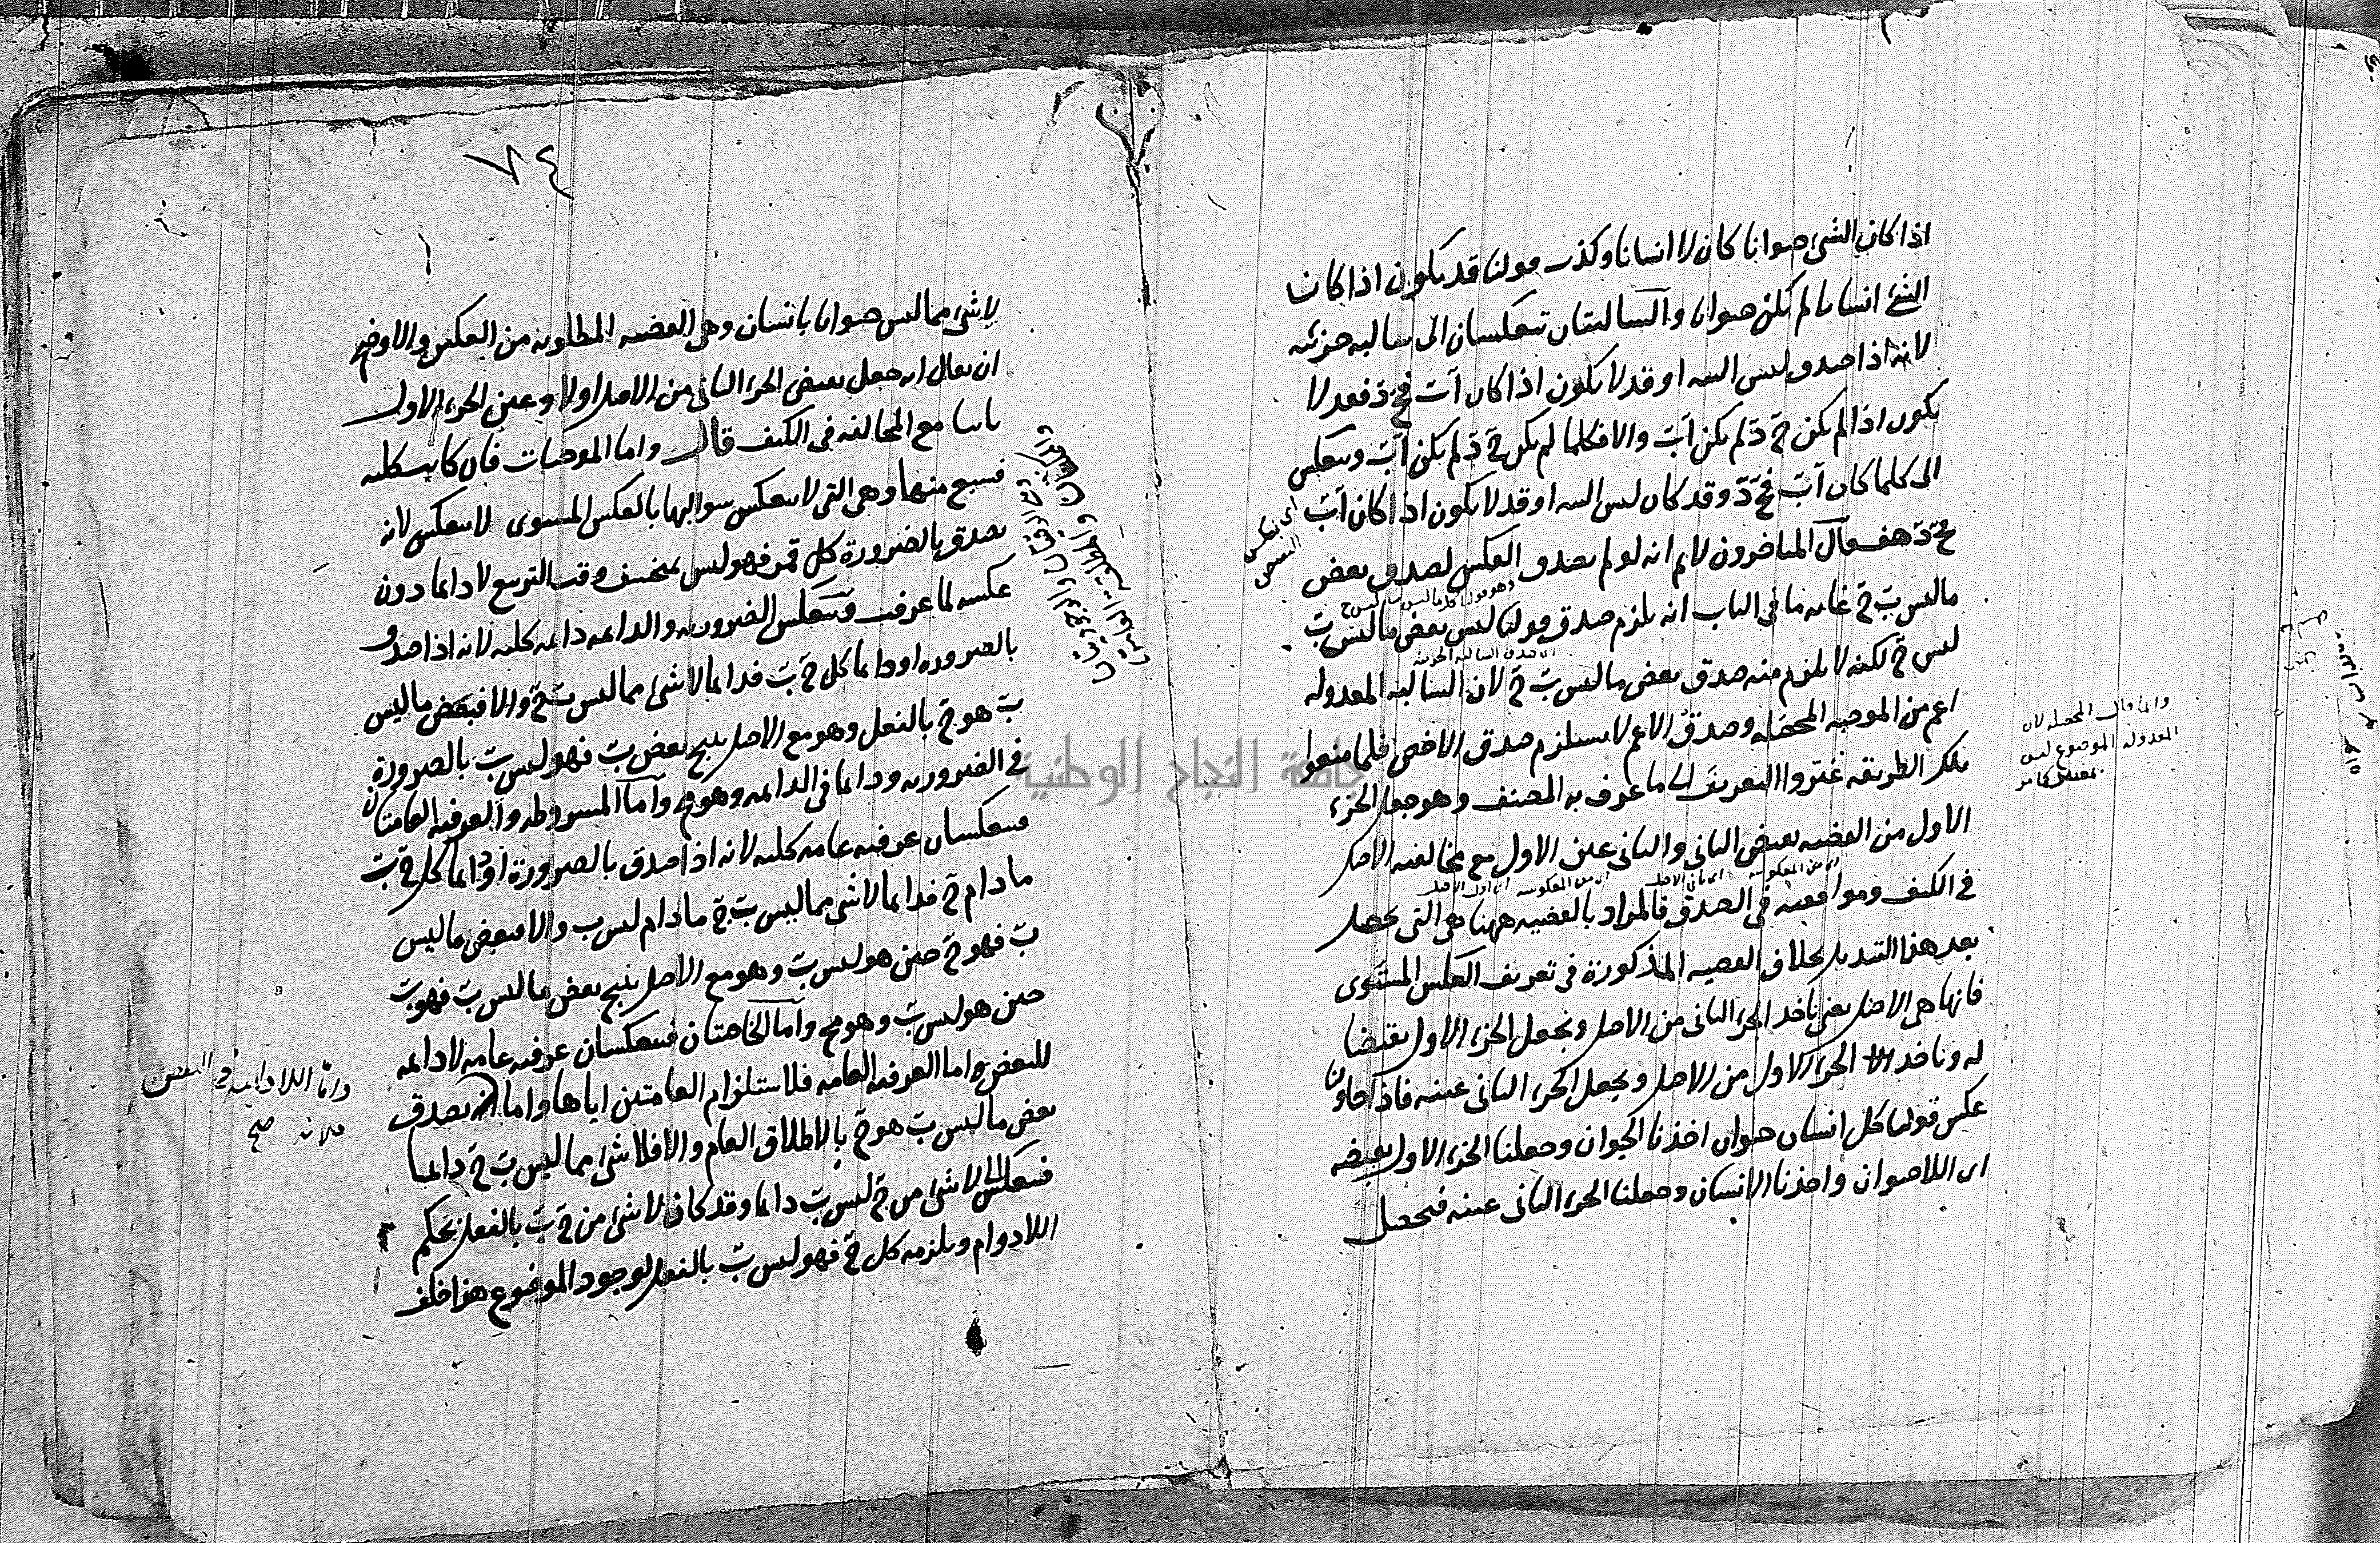 اذا كان الشئ حيوانا كان لا انسانا وكذب قولنا قد يكون اذا كان
الشئ انسانا لم يكن حيوانا والسالبتان تنعكسان الى سالبة جزئية
لانه اذا صدق ليس البتة او قد لا يكون اذا كان آب فج د فقد لا
يكون اذا لم يكن ج د لم يكن آب والا فكلما لم يكن ج د لم يكن آب وينعكس
الى كلما كان آب فج د وقد كان ليس البتة او قد لا يكون اذا كان آب
فج د هف قال المتاخرون لانم انه لو لم يصدق العكس لصدق بعض
ما ليس ب ج غاية ما في الباب انه يلزم صدق قولنا ليس بعض ما ليس ب
ليس ج لكنه لا يلزم منه صدق بعض ما ليس ب ج لان السالبة المعدولة
اعم من الموجبة المحصلة وصدق الاعم لا يستلزم صدق الاخص فلما منعوا
تلك الطريقة غيروا التعريف الى ما عرف به المصنف وهو جعل الجزء
الاول من القضية نقيض الثاني والثاني عين الاول مع مخالفة الاصل
في الكيف وموافقته في الصدق فالمراد بالقضية ههنا هي التي تحصل
بعد هذا التبديل بخلاف القضية المذكورة في تعريف العكس المستوى
فانها هي الاصل يعني ناخذ الجزء الثاني من الاصل ونجعل الجزء الاول نقيضا
له وناخذ الجزء الاول من الاصل ونجعل الجزء الثاني عينه فاذا حاولنا
عكس قولنا كل انسان حيوان اخذنا الحيوان وجعلنا الجزء الاول نقيضه
اى اللاحيوان واخذنا الانسان وجعلنا الجزء الثاني عينه فتحصل
وانما قال المحصلة لان
المعدولة الموضوع ليس
اى نقيض
٧٤
لا شئ مما ليس حيوانا بانسان وهي القضية المطلوبة من العكس والاوضح
ان يقال انه جعل نقيض الجزء الثاني من الاصل اولا وعين الجزء الاول
ثانيا مع المخالفة في الكيف قال واما الموجبات فان كانت كلية
فسبع منها وهي التي لا ينعكس سوالبها بالعكس المستوى لا ينعكس لانه
يصدق بالضرورة كل قمر فهو ليس بمنخسف وقت التربيع لا دائما دون
عكسه لما عرفت وتنعكس الضرورية والدائمة دائمة كلية لانه اذا صدق
بالضرورة او دائما كل ج ب فدائما لا شئ مما ليس ب ج والا فبعض ما ليس
ب هو ج بالفعل وهو مع الاصل ينتج بعض ب فهو ليس ب بالضرورة
في الضرورية ودائما في الدائمة وهو مح واما المشروطة والعرفية العامتان
فتنعكسان عرفية عامة كلية لانه اذا صدق بالضرورة او دائما كل ج ب
ما دام ج فدائما لا شئ مما ليس ب ج ما دام ليس ب والا فبعض ما ليس
ب فهو ج حين هو ليس ب وهو مع الاصل ينتج بعض ما ليس ب فهو ب
حين هو ليس ب وهو مح واما الخاصتان فتنعكسان عرفية عامة لا دائمة
للبعض اما العرفية العامة فلاستلزام العامتين اياها واما انه يصدق
بعض ما ليس ب هو ج بالاطلاق العام والا فلا شئ مما ليس ب ج دائما
فتنعكس الى لا شئ من ج ليس ب دائما وقد كان لا شئ من ج ب بالفعل بحكم
اللادوام ويلزمه كل ج فهو ليس ب بالفعل لوجود الموضوع هذا خلف
واما اللادائمة في البعض
فلانه صح
جامعة النجاح الوطنية